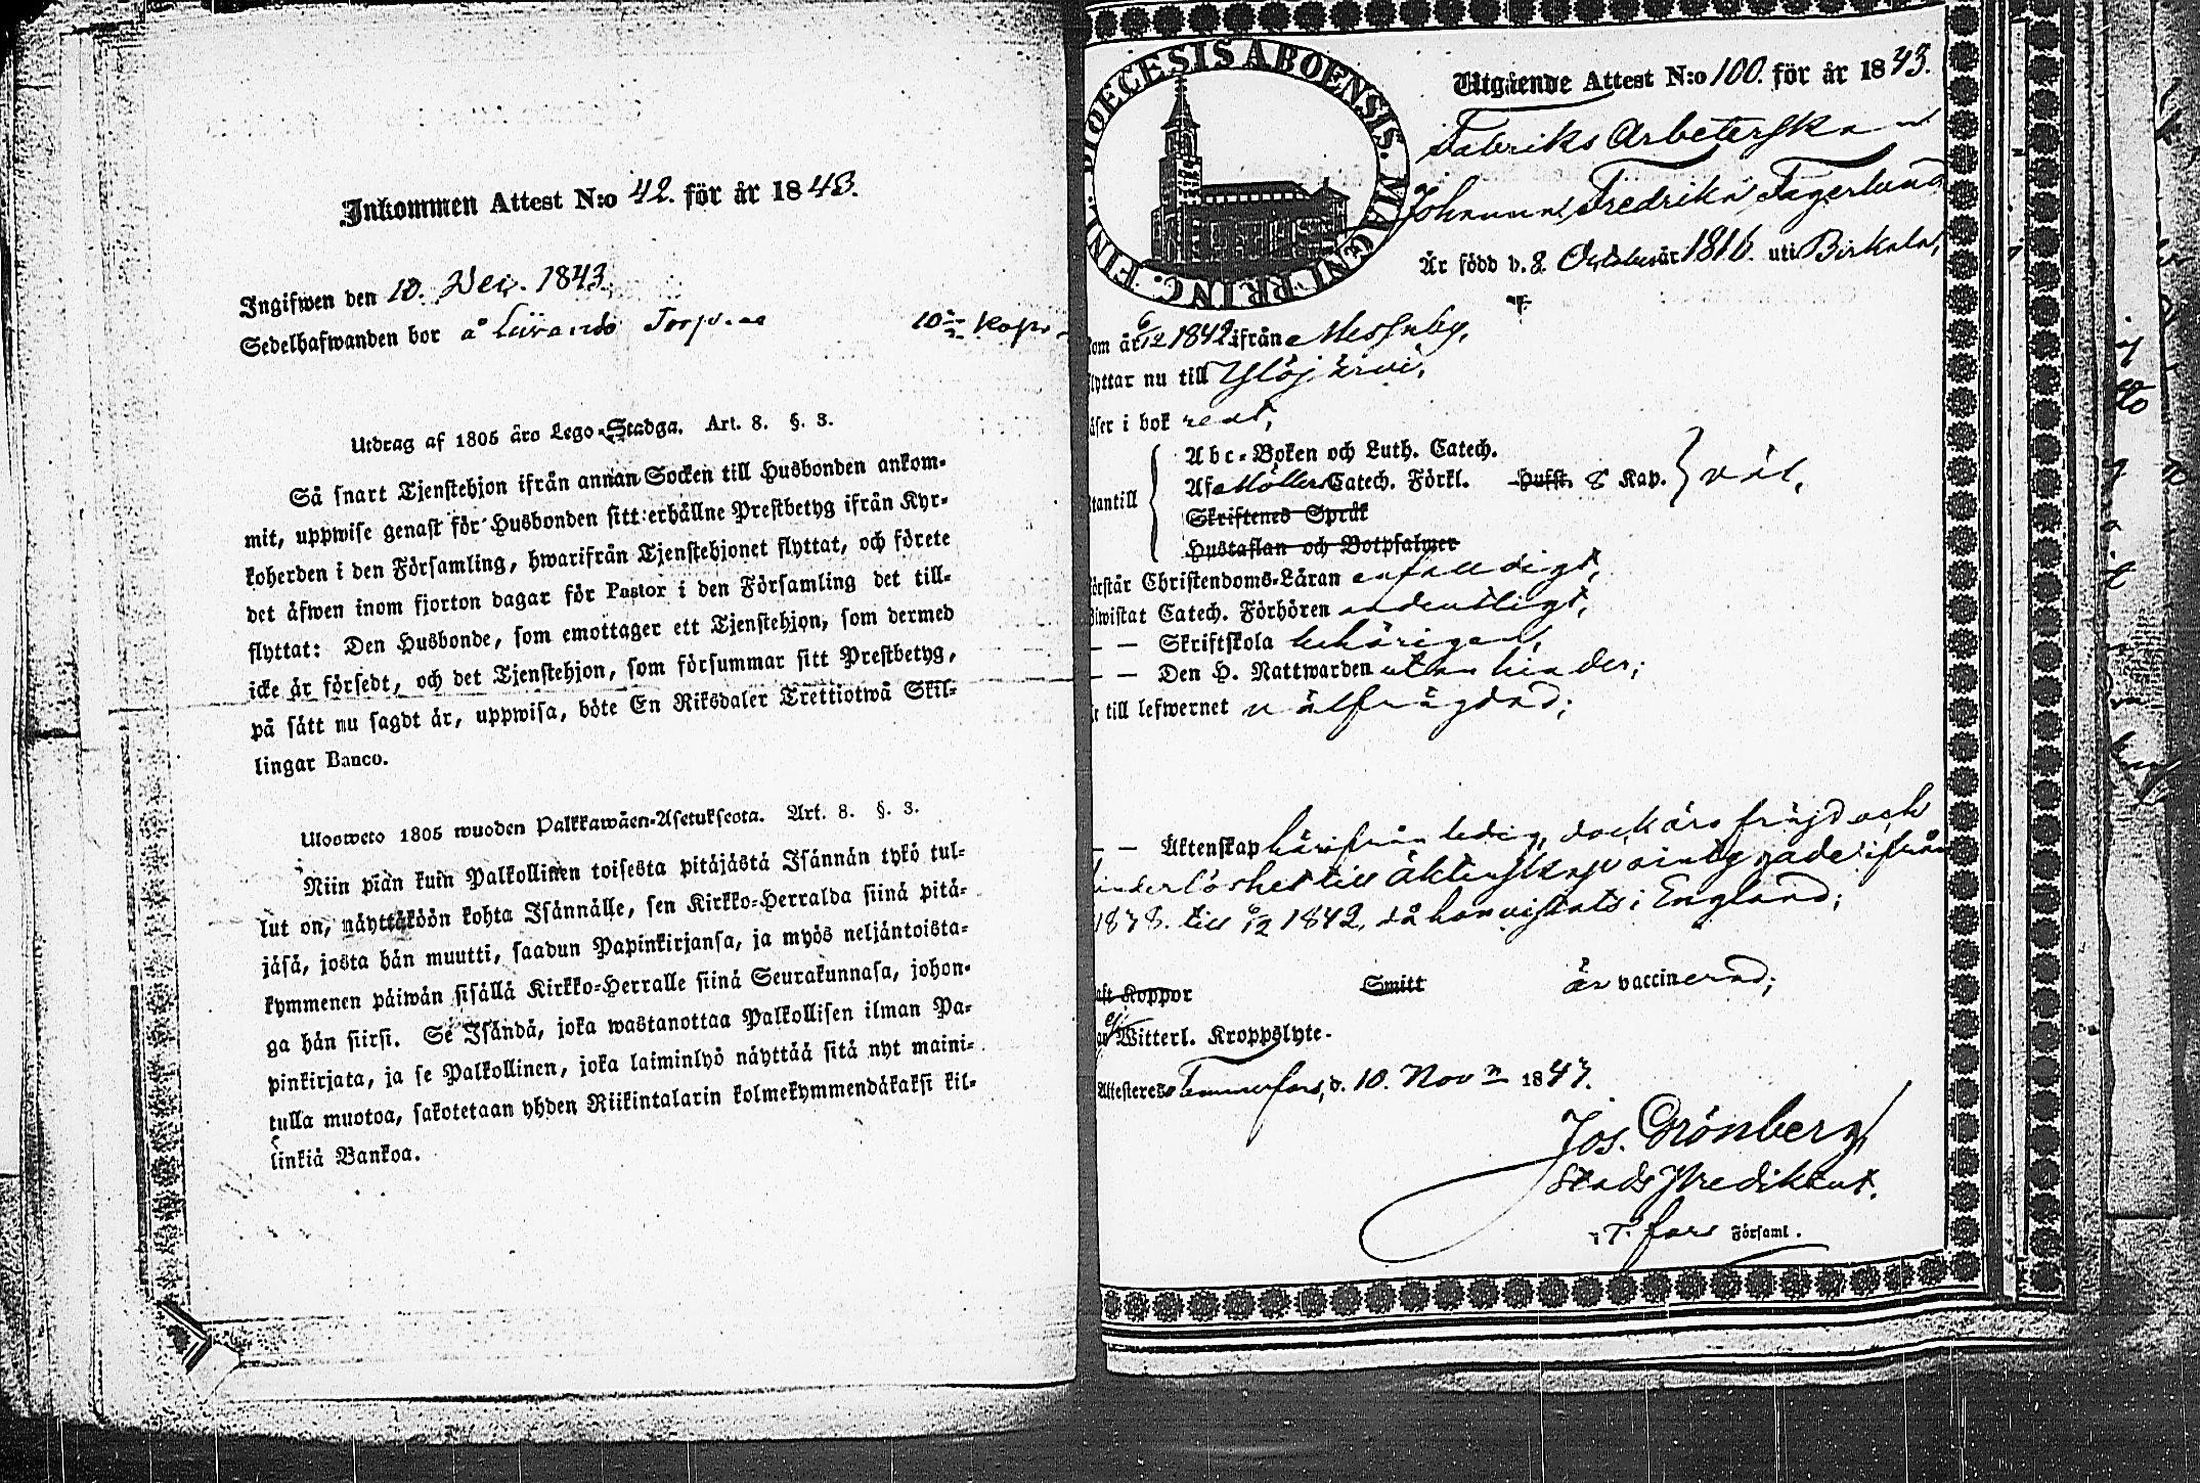 Inkommen Attest N:o 42. för år 1843.
Ingifwen den 10. Dec. 1843.
Sedelhafwanden bor å
10 Kop
Utdrag af 1805 åro Lego-Stadga. Art. 8. §. 3.
Så snart Tjenstehjon ifrån annan Socken till Husbonden ankom-
mit, uppwise genast för Husbonden sitt erhållne Prestbetyg ifrån Kyr-
koherden i den Församling, hwarifrån Tjenstehjonet flyttat, och förete
det åfwen inom fjorton dagar för Pastor i den Församling det till-
flyttat: Den Husbonde, som emottager ett Tjenstehjon, som dermed
icke år försedt, och det Tjenstehjon, som försummar sitt Prestbetyg,
på sått nu sagdt år, uppwisa, böte En Riksdaler Trettiotwå Skil-
lingar Banco.
Ulosweto 1805 wuoden Palkkawäen-Asetuksesta. Art. 8. §. 3.
Niin pian kuin Palkollinen toisesta pitåjåstå Isånnån tykö tul-
lut on, nåyttåköön kohta Isånnålle, sen Kirkko-Herralda siinå pitå-
jåså, josta hån muutti, saadun Papinkirjansa, ja myös neljåntoista-
kymmenen påiwån sisållå Kirkko-Herralle siinå Seurakunnasa, johon-
ga hån siirsi. Se Isåndå, joka wastanottaa Palkollisen ilman Pa-
pinkirjata, ja se Palkollinen, joka laiminlyö nåyttåå sitå nyt maini-
tulla muotoa, sakotetaan yhden Riikintalarin kolmekymmendåkaksi kil-
linkiå Bankoa.
DIOECESIS ABOENSIS. MAGNI PRINC. FINL.
Utgående Attest N:o 100. för år 1843.
Fabriks Arbeterskan
Johanna Fredrika Fagerlund
Är född d. 8. October år 1816. uti Birkala,
kom år 6/12 1842 ifrån Messuby,
flyttar nu till Ylöjärvi,
läser i bok rent,
Abc-Boken och Luth. Catech.
Utantill Af Möllers Catech. Förkl. Hufst. 8 Kap. väl,
Skriftenes Språk
Hustaflan och Botpsalmer
Förstår Christendoms-Låran enfaldigt,
Biwistat Catech. Förhören ordentligt,
— — Skriftskola behörigen,
— — Den H. Nattwarden utan hinder;
Är till lefwernet välfrägdad;
— — Äktenskap härifrån ledig, dock äro fräjd och
hinderlöshet till äktenskap ointygade ifrån
1838. till 6/12 1842, då hon vistats i England;
haft Koppor Smitt är vaccinerad;
har ej Witterl. Kroppslyte.
Attesteres Tammerfors, d. 10. Nov 1843.
Jos. Grönberg
Stads Predikant.
i T:fors Församl.